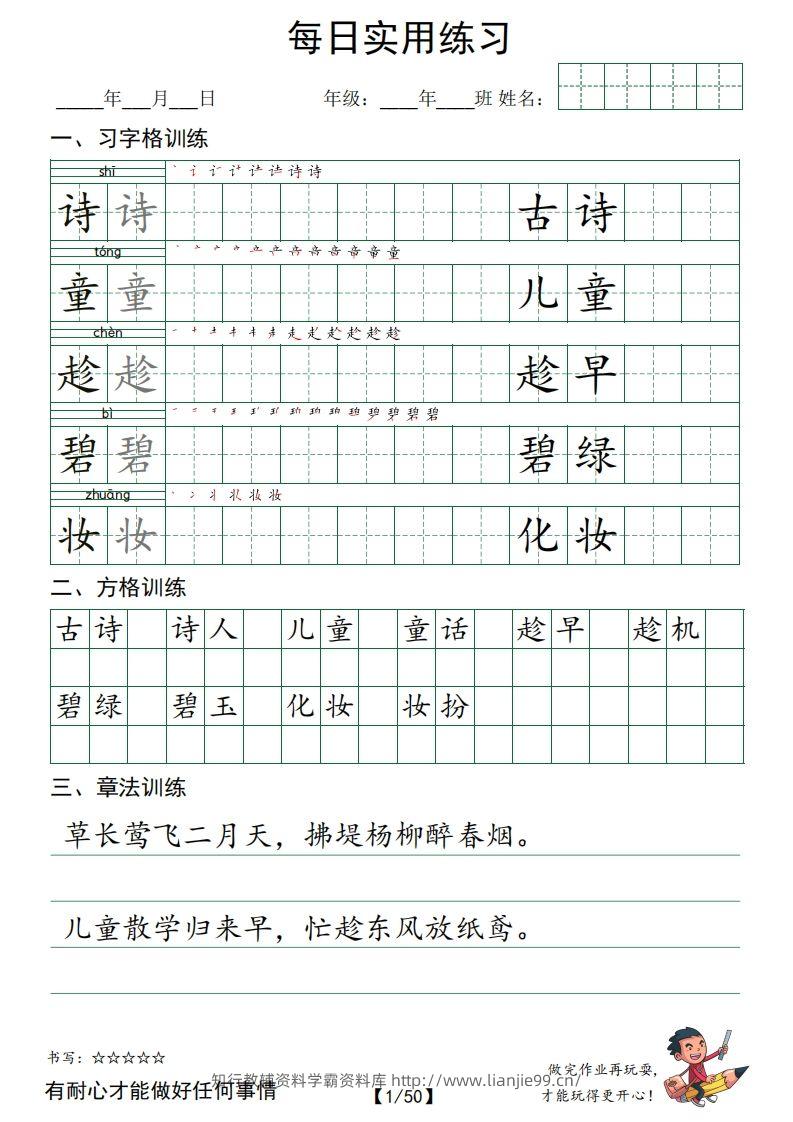 每日实用练习
_____年___月___日 年级：____年____班 姓名：
一、习字格训练
shī
诗 诗 古 诗
tóng
童 童 儿 童
chèn
趁 趁 趁 早
bì
碧 碧 碧 绿
zhuāng
妆 妆 化 妆
二、方格训练
古诗 诗人 儿童 童话 趁早 趁机
碧绿 碧玉 化妆 妆扮
三、章法训练
草长莺飞二月天，拂堤杨柳醉春烟。
儿童散学归来早，忙趁东风放纸鸢。
书写：☆☆☆☆☆
做完作业再玩耍，
知行教辅资料学霸资料库 http://www.lianjie99.cn/
有耐心才能做好任何事情
【1/50】
才能玩得更开心！